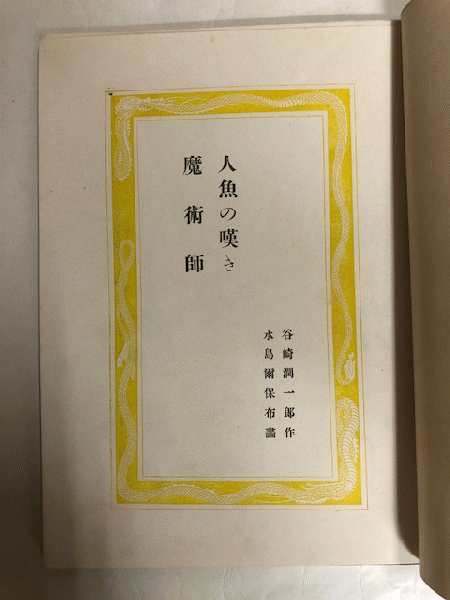 人魚の嘆き
魔術師
谷崎潤一郎作
水島爾保布畵